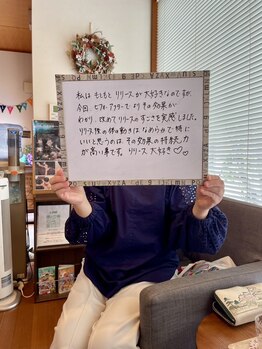 私は もともと リリースが 大好きなのですが、
今回、ビフォーアフターで よりその効果が
わかり、改めて リリースの すごさを 実感しました。
リリース後の体の動きは なめらかで 特に
いいと思うのは、その効果の持続力
が高い事です。リリース 大好き♡♡